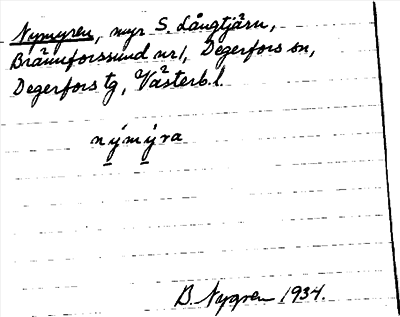 Nymyren, myr S. Långtjärn,
Brännforssund nr 1, Degerfors sn,
Degerfors tg, Västerb. l.
nýmýra
B. Nygren 1934.